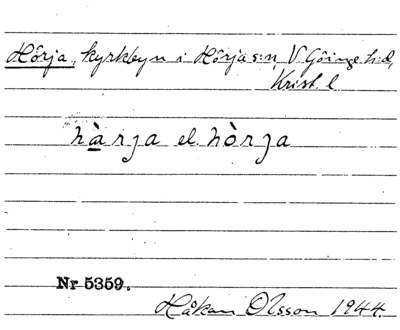 Hörja, kyrkbyn i Hörja s:n, V. Göinge h:d,
Krist. l.
hàrja el. hòrja
Nr 5359.
Håkan Olsson 1944.